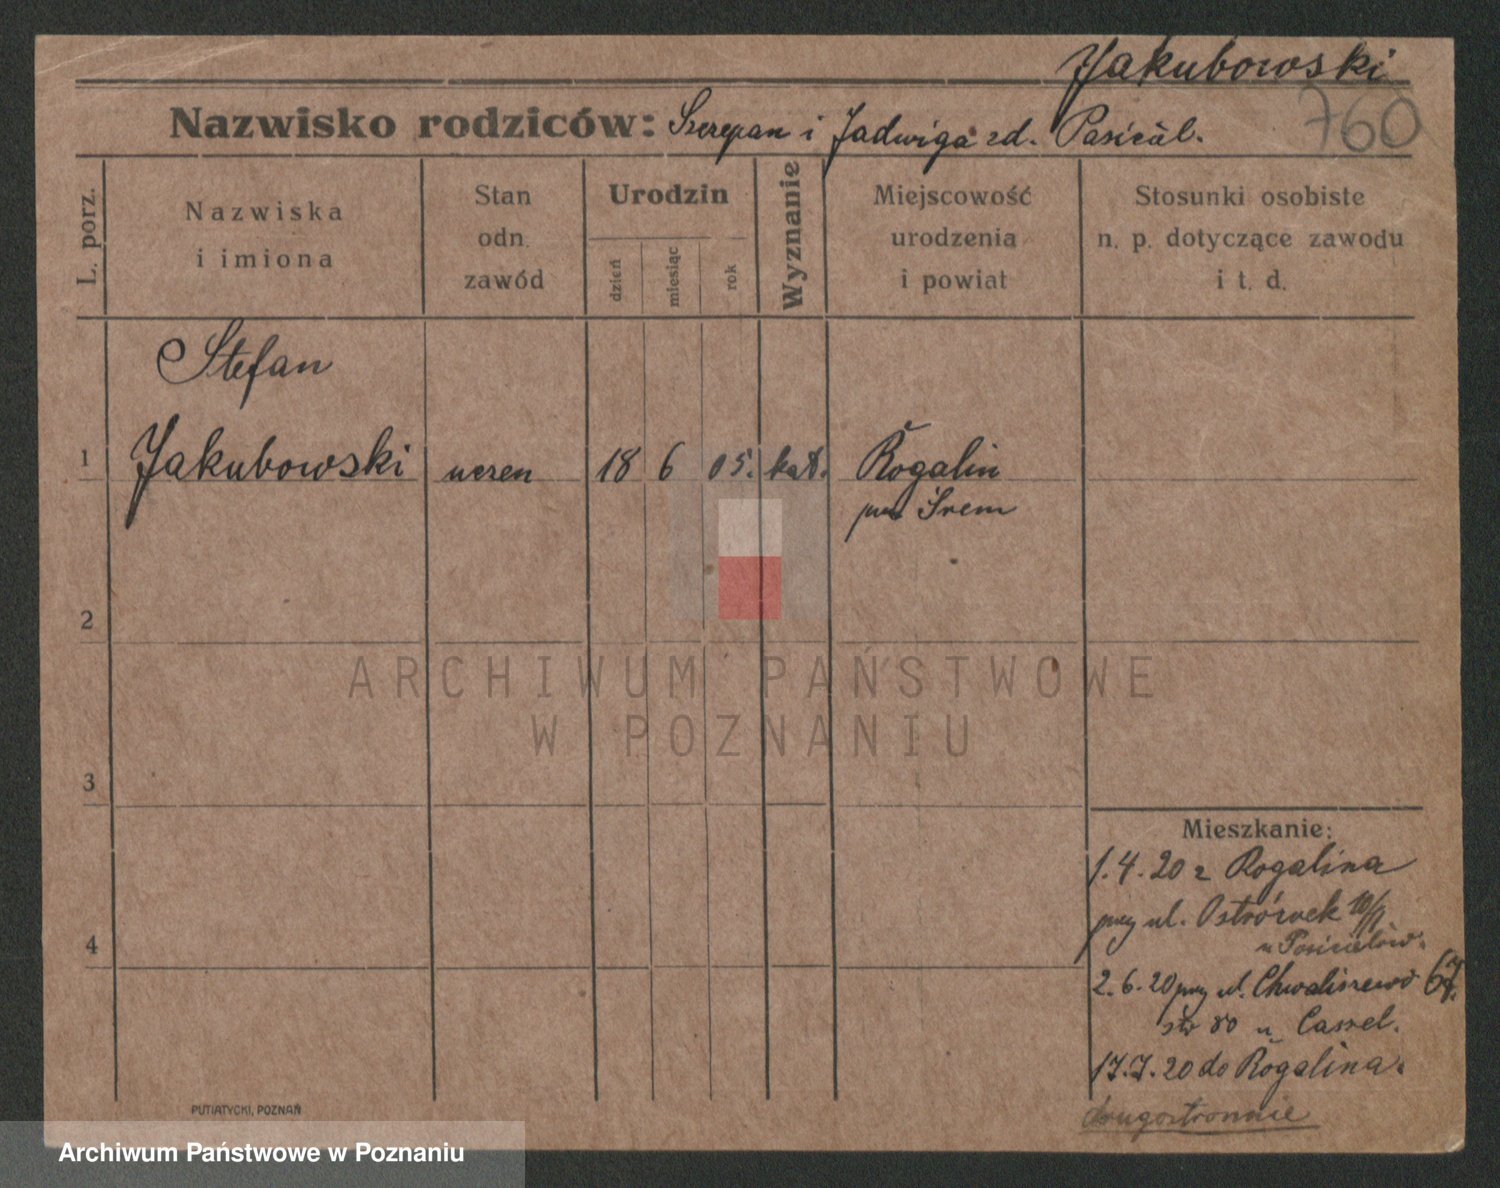 Jakubowski
760
Nazwisko rodziców: Szczepan i Jadwiga zd. Pasicál.
L. porz.
Nazwiska i imiona
Stan odn. zawód
Urodzin
dzień
miesiąc
rok
Wyznanie
Miejscowość urodzenia i powiat
Stosunki osobiste n. p. dotyczące zawodu i t. d.
Stefan
1 Jakubowski uczeń 18 6 05. kat. Rogalin
pow Śrem
2
ARCHIWUM PAŃSTWOWE
W POZNANIU
3
4
Mieszkanie:
1.4.20 z Rogalina
przy ul. Ostrówek
u Pościelów.
2.6.20 przy ul. Chwaliszewo 67.
u Cassel.
17.7.20 do Rogalina.
drugostronnie
PUTIATYCKI, POZNAŃ
Archiwum Państwowe w Poznaniu